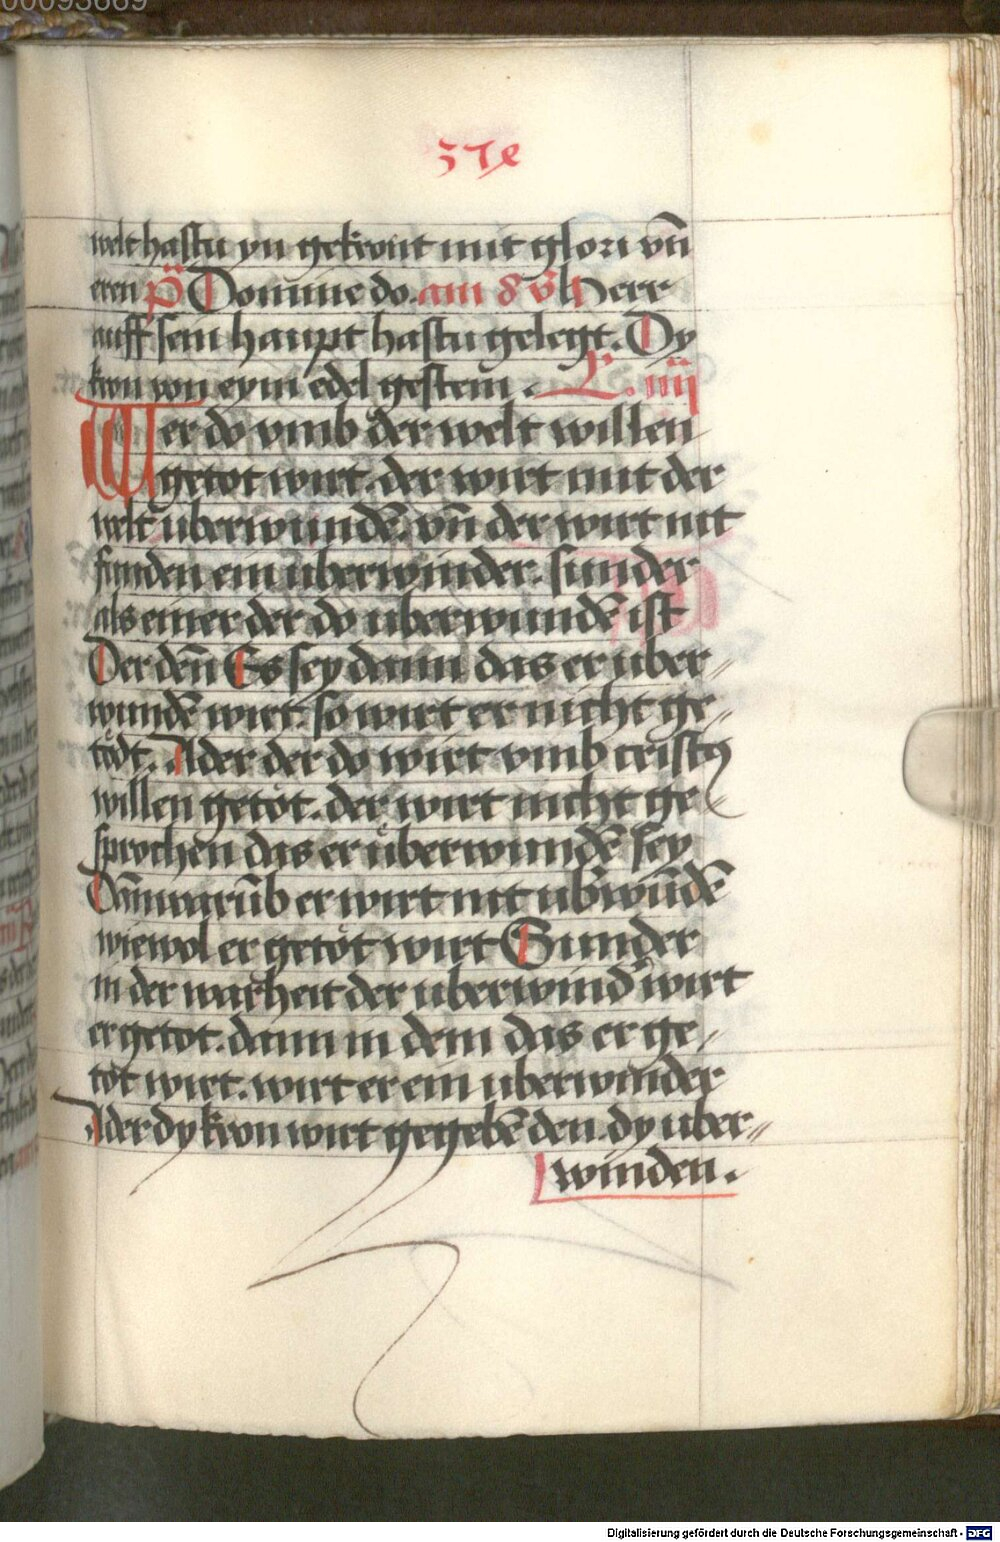 00093669
37e
welt hastu yn gekront mit glori vn̄
eren p̄ Domine do. am 8 v̄ Herr
auff sein haupt hastu gelegt. Dy
kron von eym edel gestein. L. iiij
Wer do vmb der welt willen
getot wirt. der wirt mit der
welt uberwundē. vn̄ der wirt nit
funden ein uberwinder. sunder
als einer der do uberwundē ist
Der den̄ Es sey dann das er uber〃
wundē wirt. so wirt er nicht ge〃
tödt. Ader der do wirt vmb cristꝰ
willen getöt. der wirt nicht ge
sprochen das er überwundē sey
Dan̄ warūb er wirt nit ub̄wūdē
wiewol er getöt wirt Sunder
in der warheit der uberwind̄ wirt
er getot. dann in dem das er ge〃
töt wirt. wirt er ein uberwinder
Ader dy kron wirt gegebē den. dy uber〃
winden.
Digitalisierung gefördert durch die Deutsche Forschungsgemeinschaft - DFG